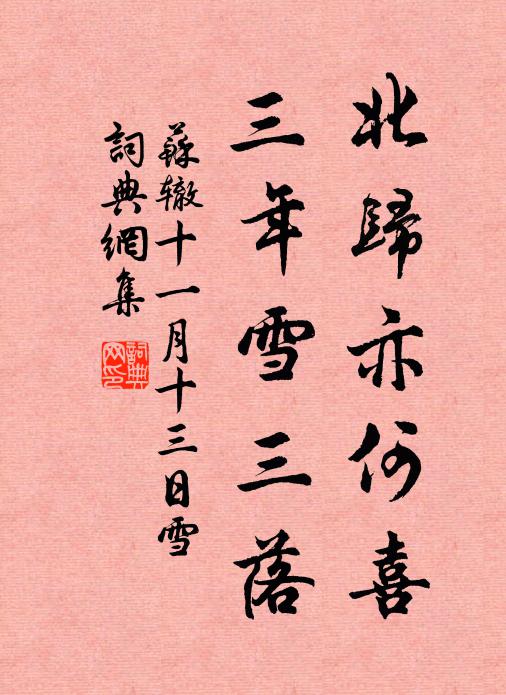 北歸亦何喜
三年雪三落
蘇辙十一月十三日雪
詞典網集
詞典
网印